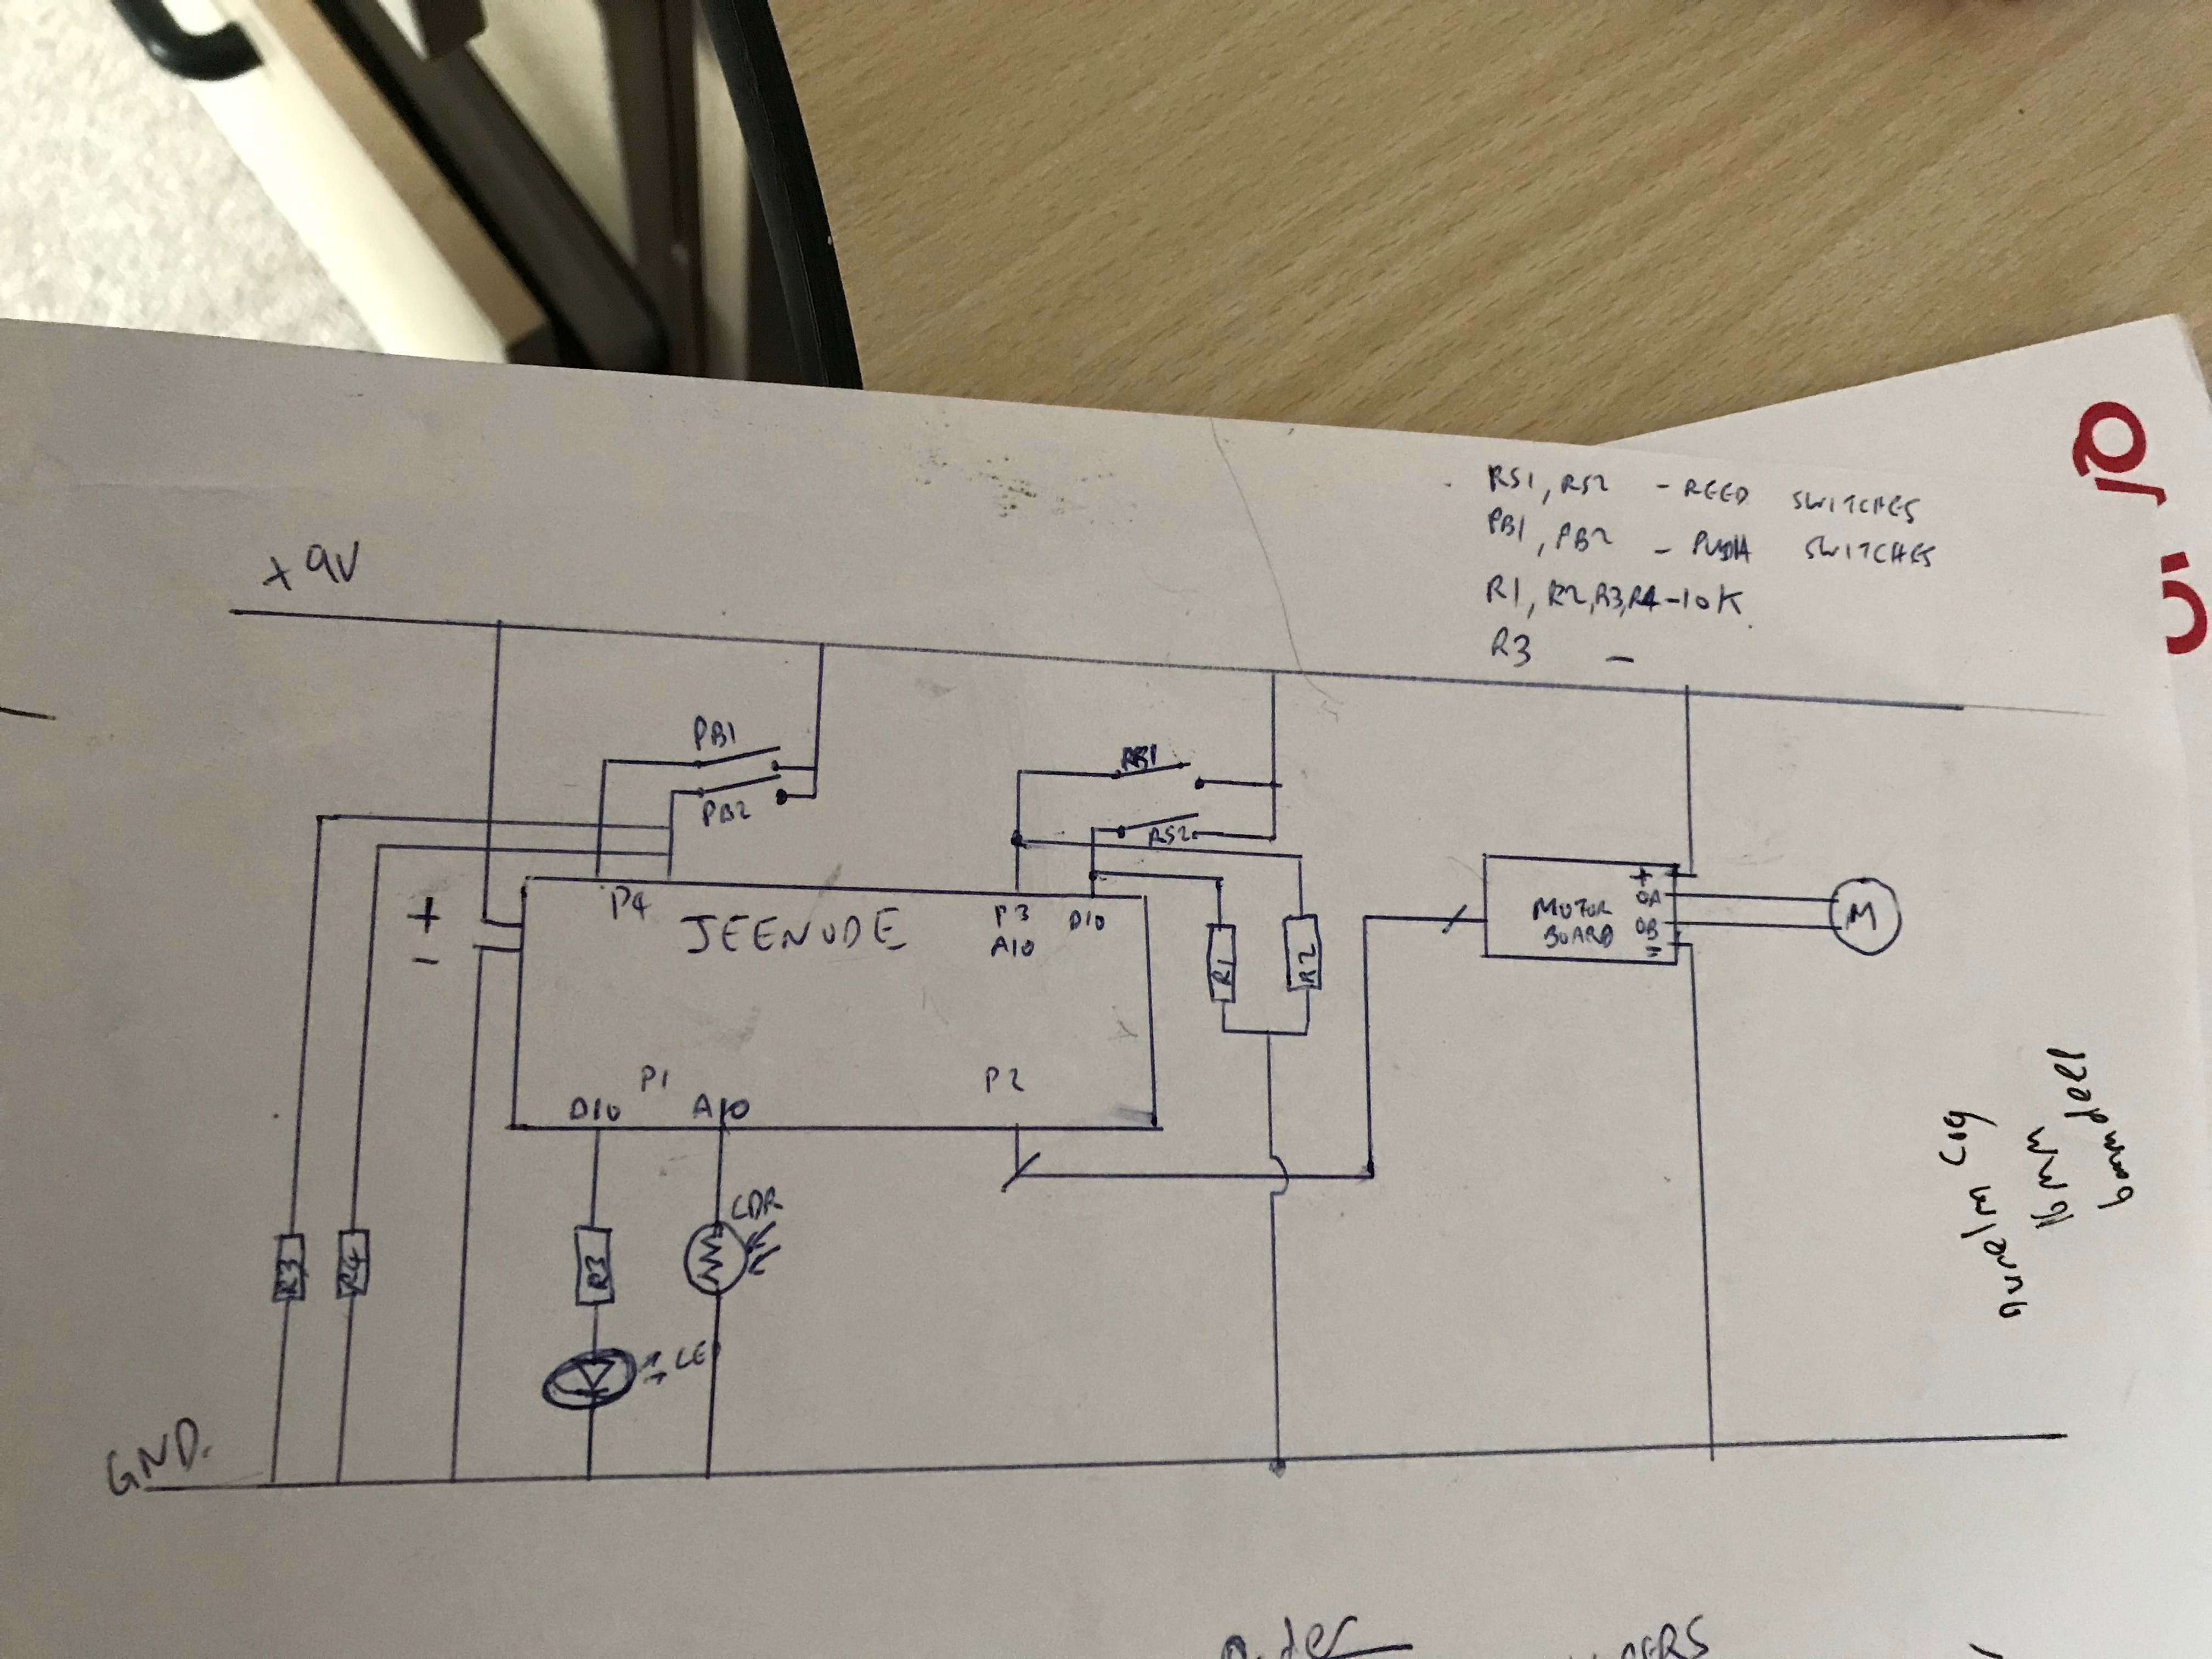 RS1, RS2 - REED SWITCHES
PB1, PB2 - PUSH SWITCHES
R1, R2, R3, R4 - 10K
R3 -
+9V
PB1
PB2
RS1
RS2
+
-
P4
JEENODE
P3
A10
D10
R1
R2
MOTOR
BOARD
+
OA
OB
-
M
P1
D10
A10
P2
R3
R4
R3
LDR
LED
GND.
16mm